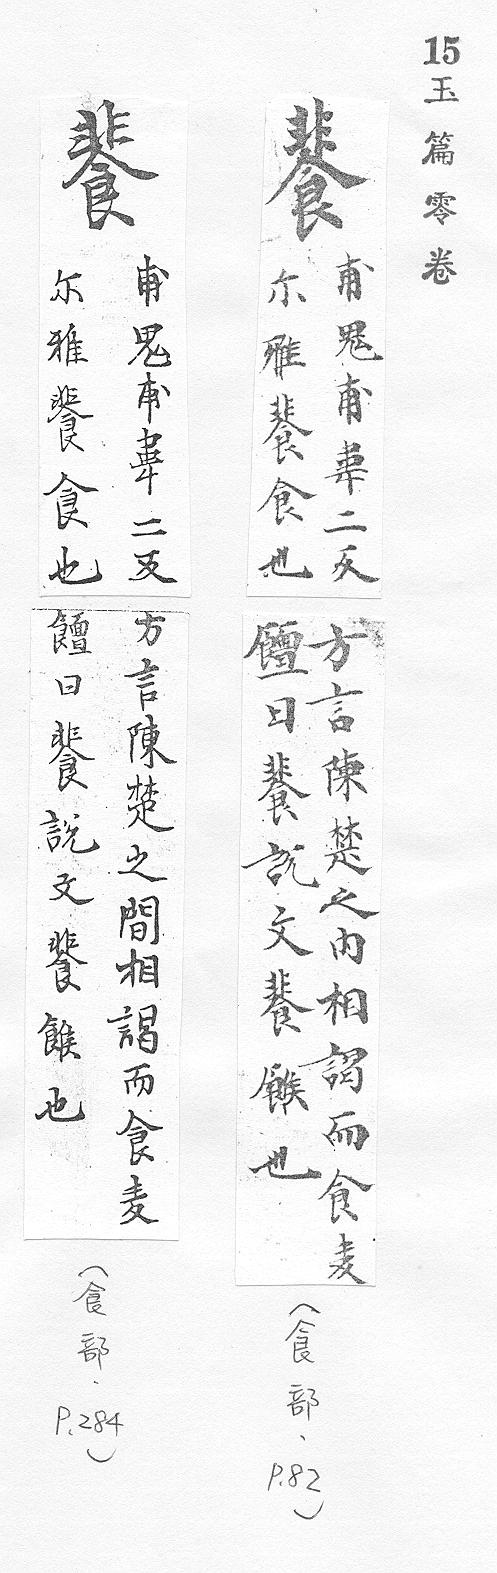 15玉篇零卷
餥
甫鬼甫韋二反
尒雅餥食也
方言陳楚之內相謁而食麦
饘曰餥說文餥餱也
(食部、P.82)
餥
甫鬼甫韋二反
尒雅餥食也
方言陳楚之間相謁而食麦
饘曰餥說文餥餱也
(食部、P.284)